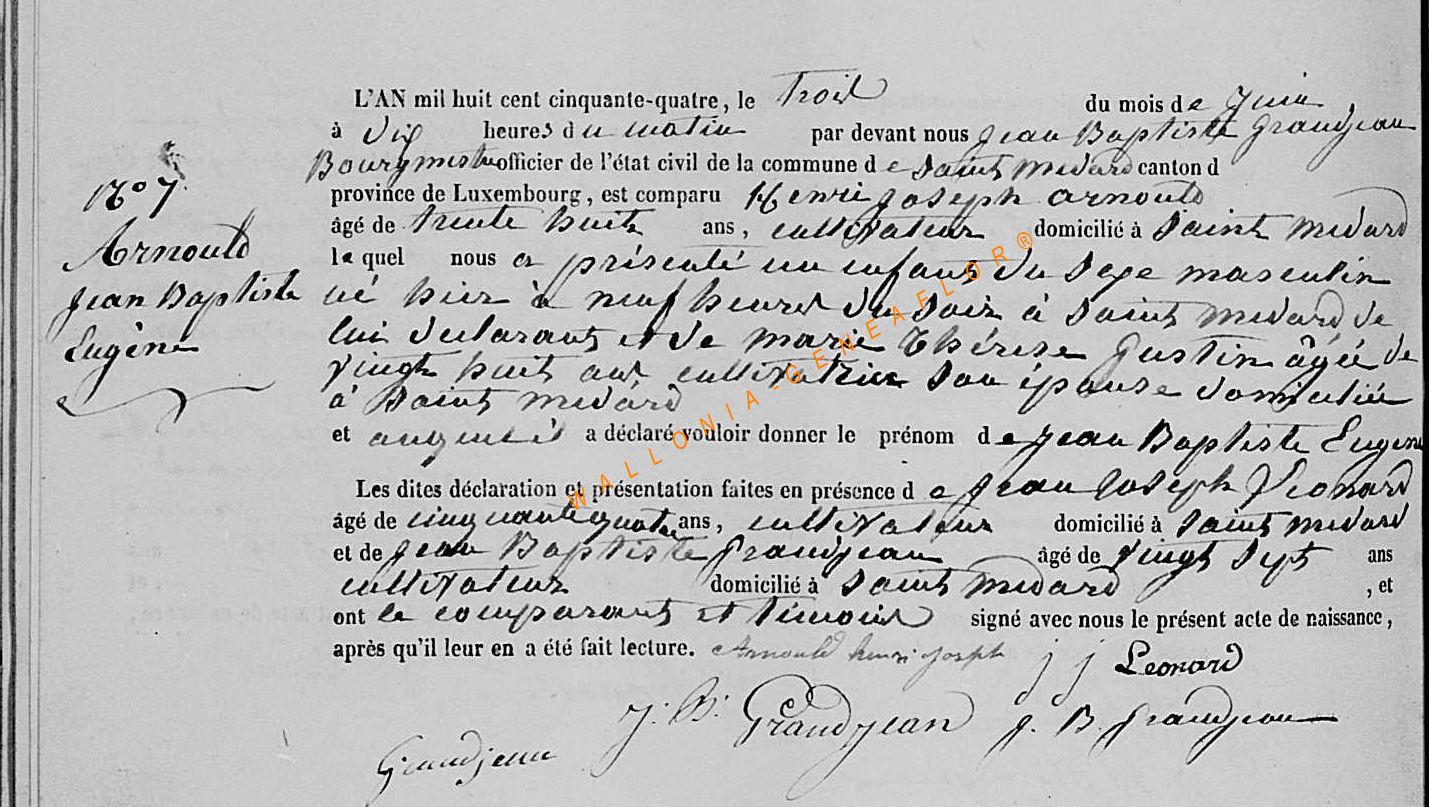 L'AN mil huit cent cinquante-quatre, le trois du mois de Juin,
à dix heures du matin par devant nous Jean Baptiste Grandjean
Bourgmestre officier de l'état civil de la commune de Saint Médard canton d
province de Luxembourg, est comparu Henri Joseph Arnould
âgé de trente huit ans, cultivateur domicilié à Saint Médard
lequel nous a présenté un enfant du sexe masculin
né hier à neuf heures du soir à Saint Médard de
lui déclarant et de Marie Thérèse Justin âgée de
vingt huit ans cultivatrice son épouse domiciliée
à Saint Médard
et auquel il a déclaré vouloir donner le prénom de Jean Baptiste Eugène
Les dites déclaration et présentation faites en présence de Jean Joseph Léonard
âgé de cinquante quatre ans, cultivateur domicilié à Saint Médard
et de Jean Baptiste Grandjean âgé de vingt sept ans
cultivateur domicilié à Saint Médard, et
ont le comparant et témoins signé avec nous le présent acte de naissance,
après qu'il leur en a été fait lecture. Arnould henri joseph j j Leonard
J. B. Grandjean J. B. Grandjean
Grandjean
Arnould
Jean Baptiste
Eugène
WALLONIA-GENEAFLOR®